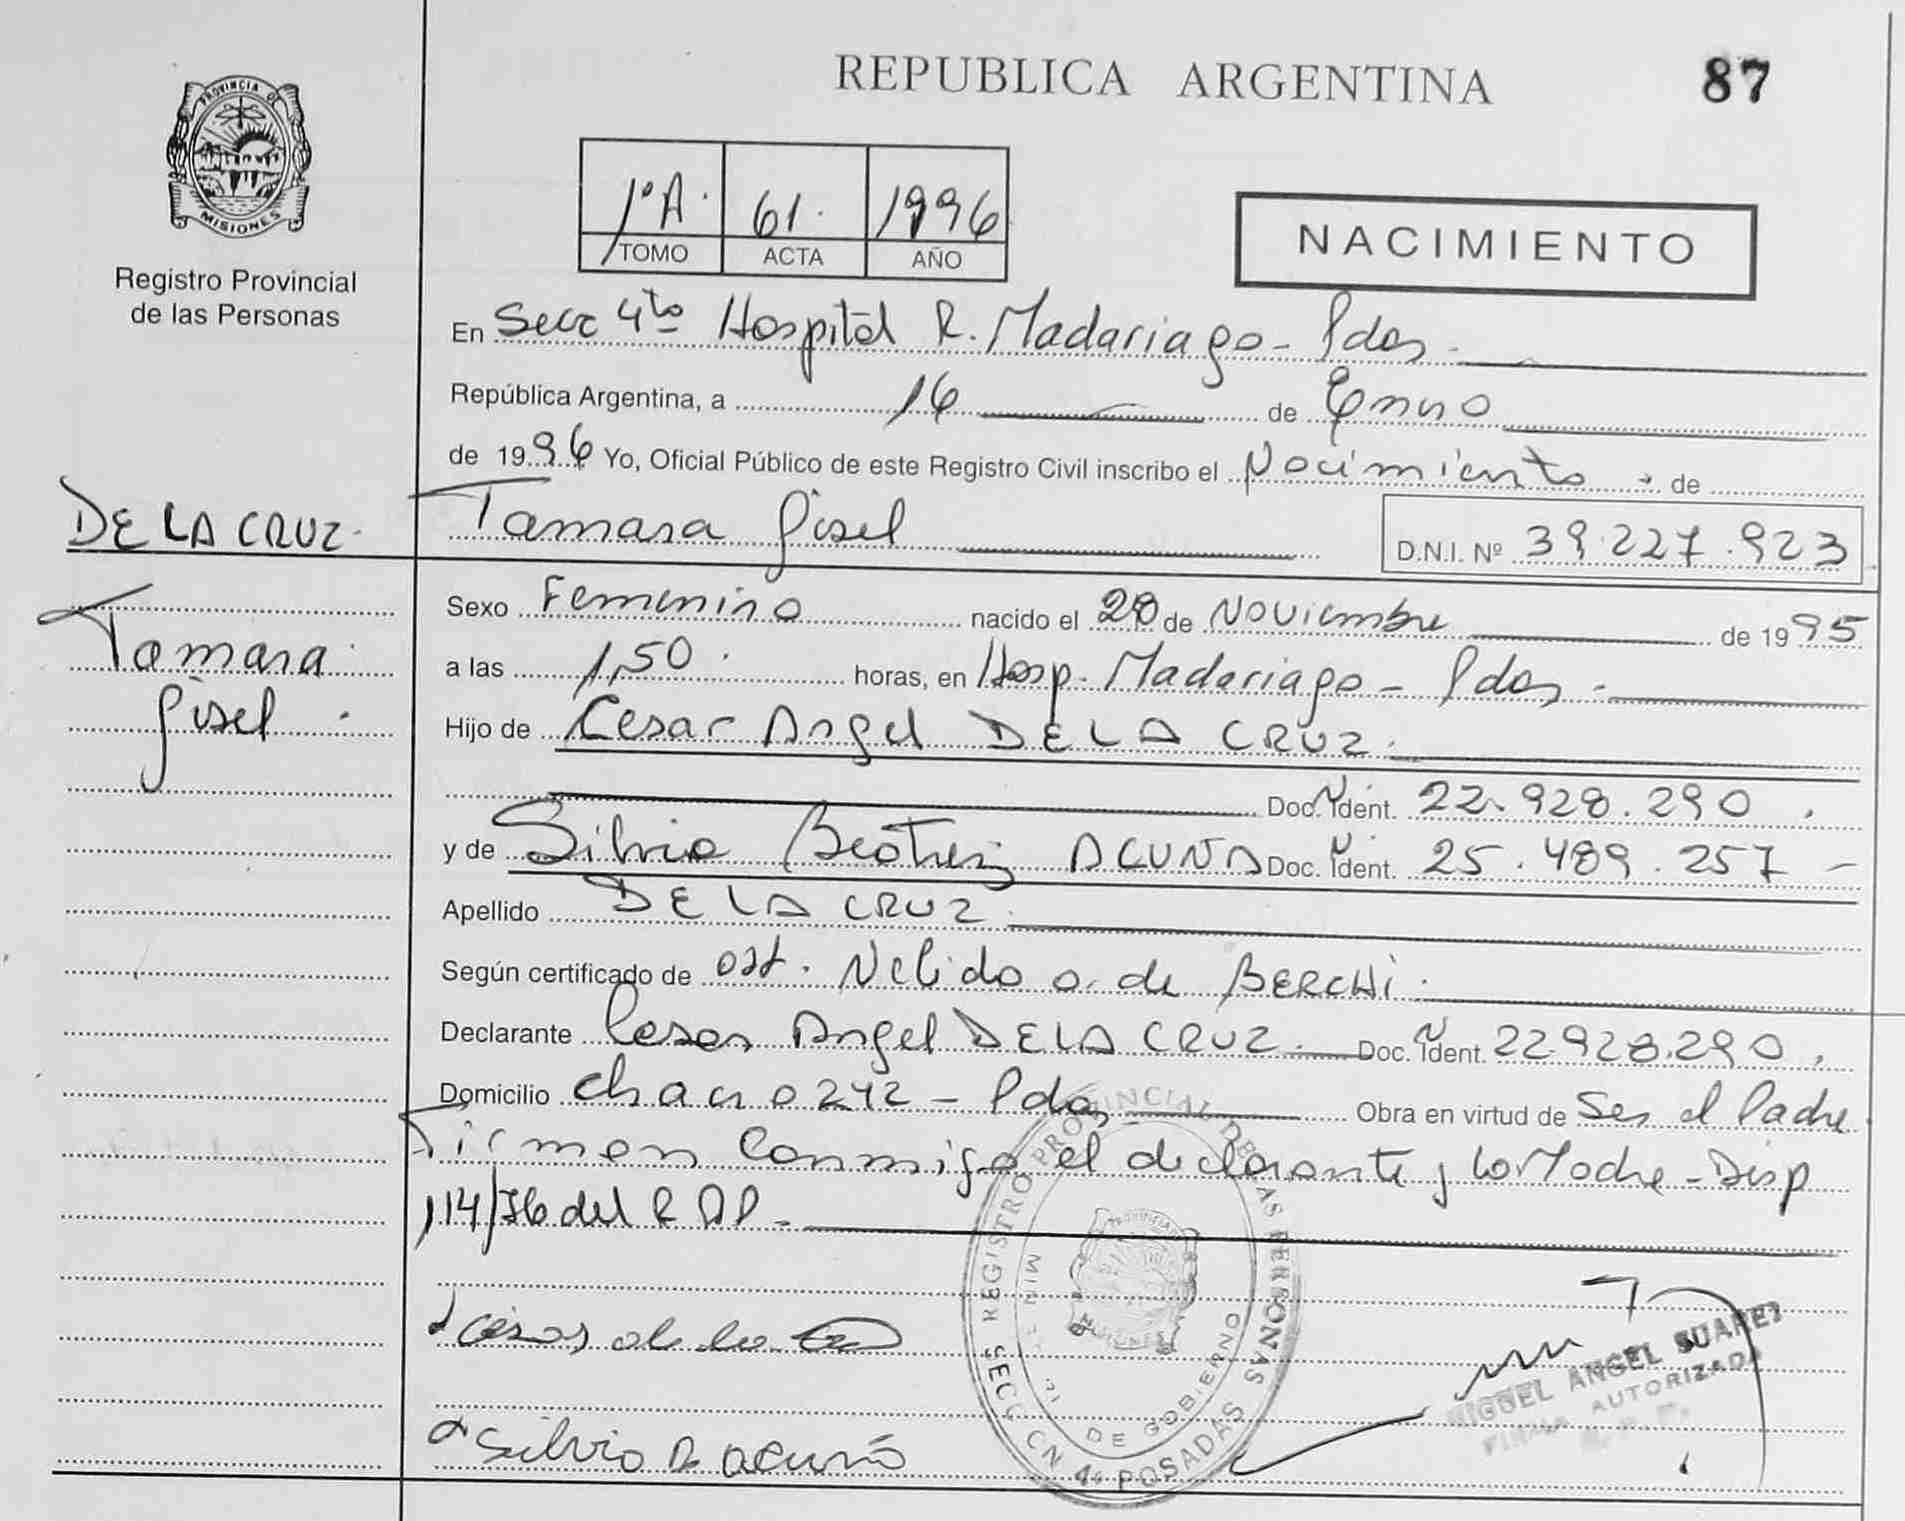 REPUBLICA ARGENTINA
87
PROVINCIA DE
MISIONES
Registro Provincial
de las Personas
1º A. 61. 1996
TOMO ACTA AÑO
NACIMIENTO
En Secc 4ta Hospital R. Madariaga - Pdas.
República Argentina, a 16 de Enero
de 1996 Yo, Oficial Público de este Registro Civil inscribo el Nacimiento de
DE LA CRUZ.
Tamara Gisel
D.N.I. Nº 39.227.923
Tamara
Gisel.
Sexo Femenino nacido el 28 de Noviembre de 1995
a las 1,50 horas, en Hosp. Madariaga - Pdas.
Hijo de Cesar Angel DE LA CRUZ.
Doc. Ident. 22.928.290.
y de Silvia Beatriz ACUÑA Doc. Ident. 25.489.257 -
Apellido DE LA CRUZ.
Según certificado de ost. Nelida O. de BERCHI.
Declarante Cesar Angel DE LA CRUZ. Doc. Ident. 22.928.290.
Domicilio Chacra 242 - Pdas Obra en virtud de Ser el Padre
Firman Conmigo el declarante y la Madre - Disp
114/76 del R.P.P.
REGISTRO PROVINCIAL DE LAS PERSONAS
DE GOBIERNO
MISIONES
SECC CN 4ª POSADAS
Cesar de la
Silvia B Acuña
MIGUEL ANGEL SUAREZ
FIRMA AUTORIZADA